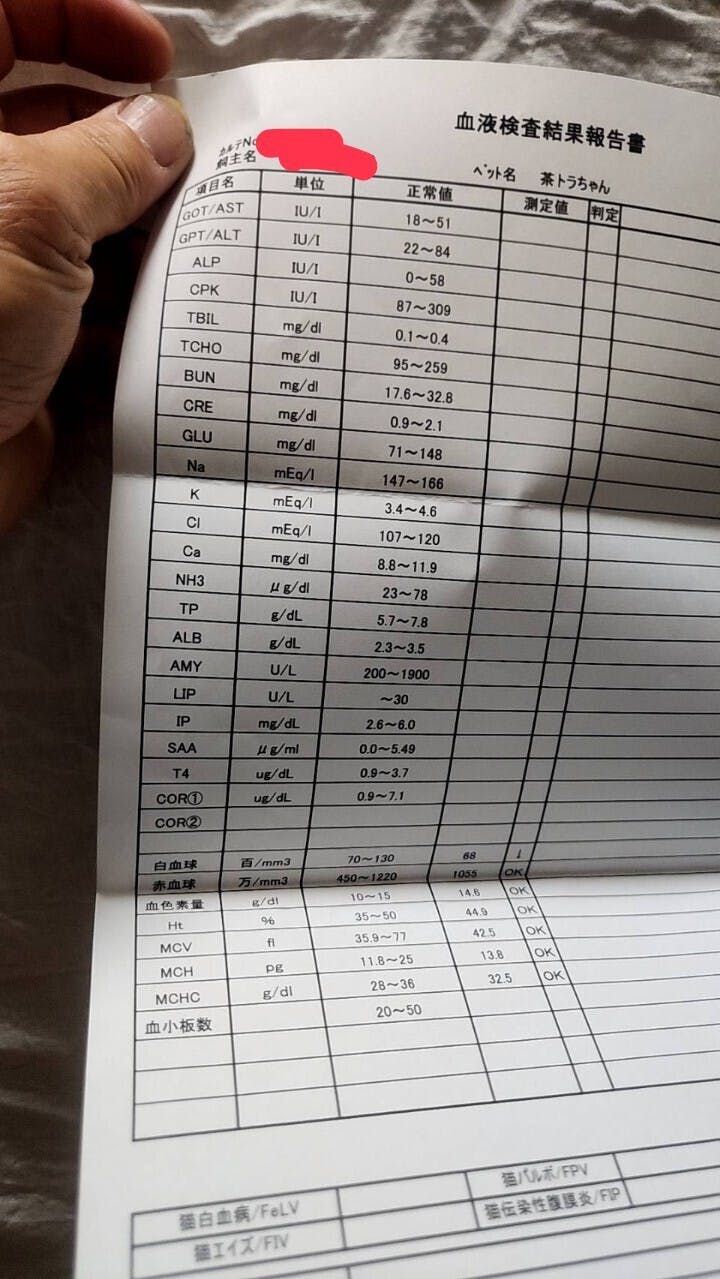 血液検査結果報告書
カルテNo
飼主名
ペット名 茶トラちゃん
項目名 単位 正常値 測定値 判定
GOT/AST IU/l 18～51
GPT/ALT IU/l 22～84
ALP IU/l 0～58
CPK IU/l 87～309
TBIL mg/dl 0.1～0.4
TCHO mg/dl 95～259
BUN mg/dl 17.6～32.8
CRE mg/dl 0.9～2.1
GLU mg/dl 71～148
Na mEq/l 147～166
K mEq/l 3.4～4.6
Cl mEq/l 107～120
Ca mg/dl 8.8～11.9
NH3 μg/dl 23～78
TP g/dL 5.7～7.8
ALB g/dL 2.3～3.5
AMY U/L 200～1900
LIP U/L ～30
IP mg/dL 2.6～6.0
SAA μg/ml 0.0～5.49
T4 ug/dL 0.9～3.7
COR① ug/dL 0.9～7.1
COR②
白血球 百/mm3 70～130 68 ↓
赤血球 万/mm3 450～1220 1055 OK
血色素量 g/dl 10～15 14.6 OK
Ht % 35～50 44.9 OK
MCV fl 35.9～77 42.5 OK
MCH pg 11.8～25 13.8 OK
MCHC g/dl 28～36 32.5 OK
血小板数 20～50
猫白血病/FeLV 猫パルボ/FPV
猫エイズ/FIV 猫伝染性腹膜炎/FIP